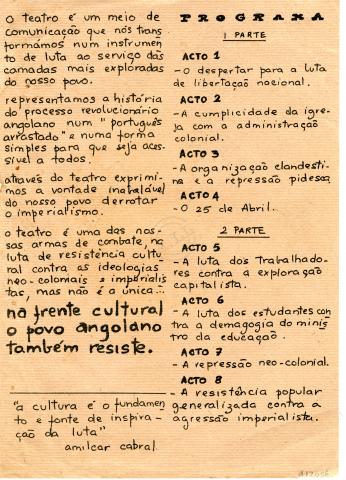 O teatro é um meio de
comunicação que nós trans
formámos num instrumen
to de luta ao serviço das
camadas mais exploradas
do nosso povo.
representamos a história
do processo revolucionário
angolano num "português
arrastado" e numa forma
simples para que seja aces-
sível a todos.
através do teatro exprimi-
mos a vontade inabalável
do nosso povo derrotar
o imperialismo.
o teatro é uma das nos-
sas armas de combate, na
luta de resistência cultu-
ral contra as ideologias
neo-coloniais e imperialis
tas, mas não é a única...
na frente cultural
o povo angolano
também resiste.
"a cultura é o fundamen
to e fonte de inspira-
ção da luta"
amilcar cabral
PROGRAMA
1 PARTE
ACTO 1
-O despertar para a luta
de libertação nacional.
ACTO 2
-A cumplicidade da igre-
ja com a administração
colonial.
ACTO 3
-A organização clandesti-
na e a repressão pidesca.
ACTO 4
-O 25 de Abril.
2 PARTE
ACTO 5
-A luta dos Trabalhado-
res contra a exploração
capitalista.
ACTO 6
-A luta dos estudantes con
tra a demagogia do minis
tro da educação.
ACTO 7
-A repressão neo-colonial.
ACTO 8
-A resistência popular
generalizada contra a
agressão imperialista.